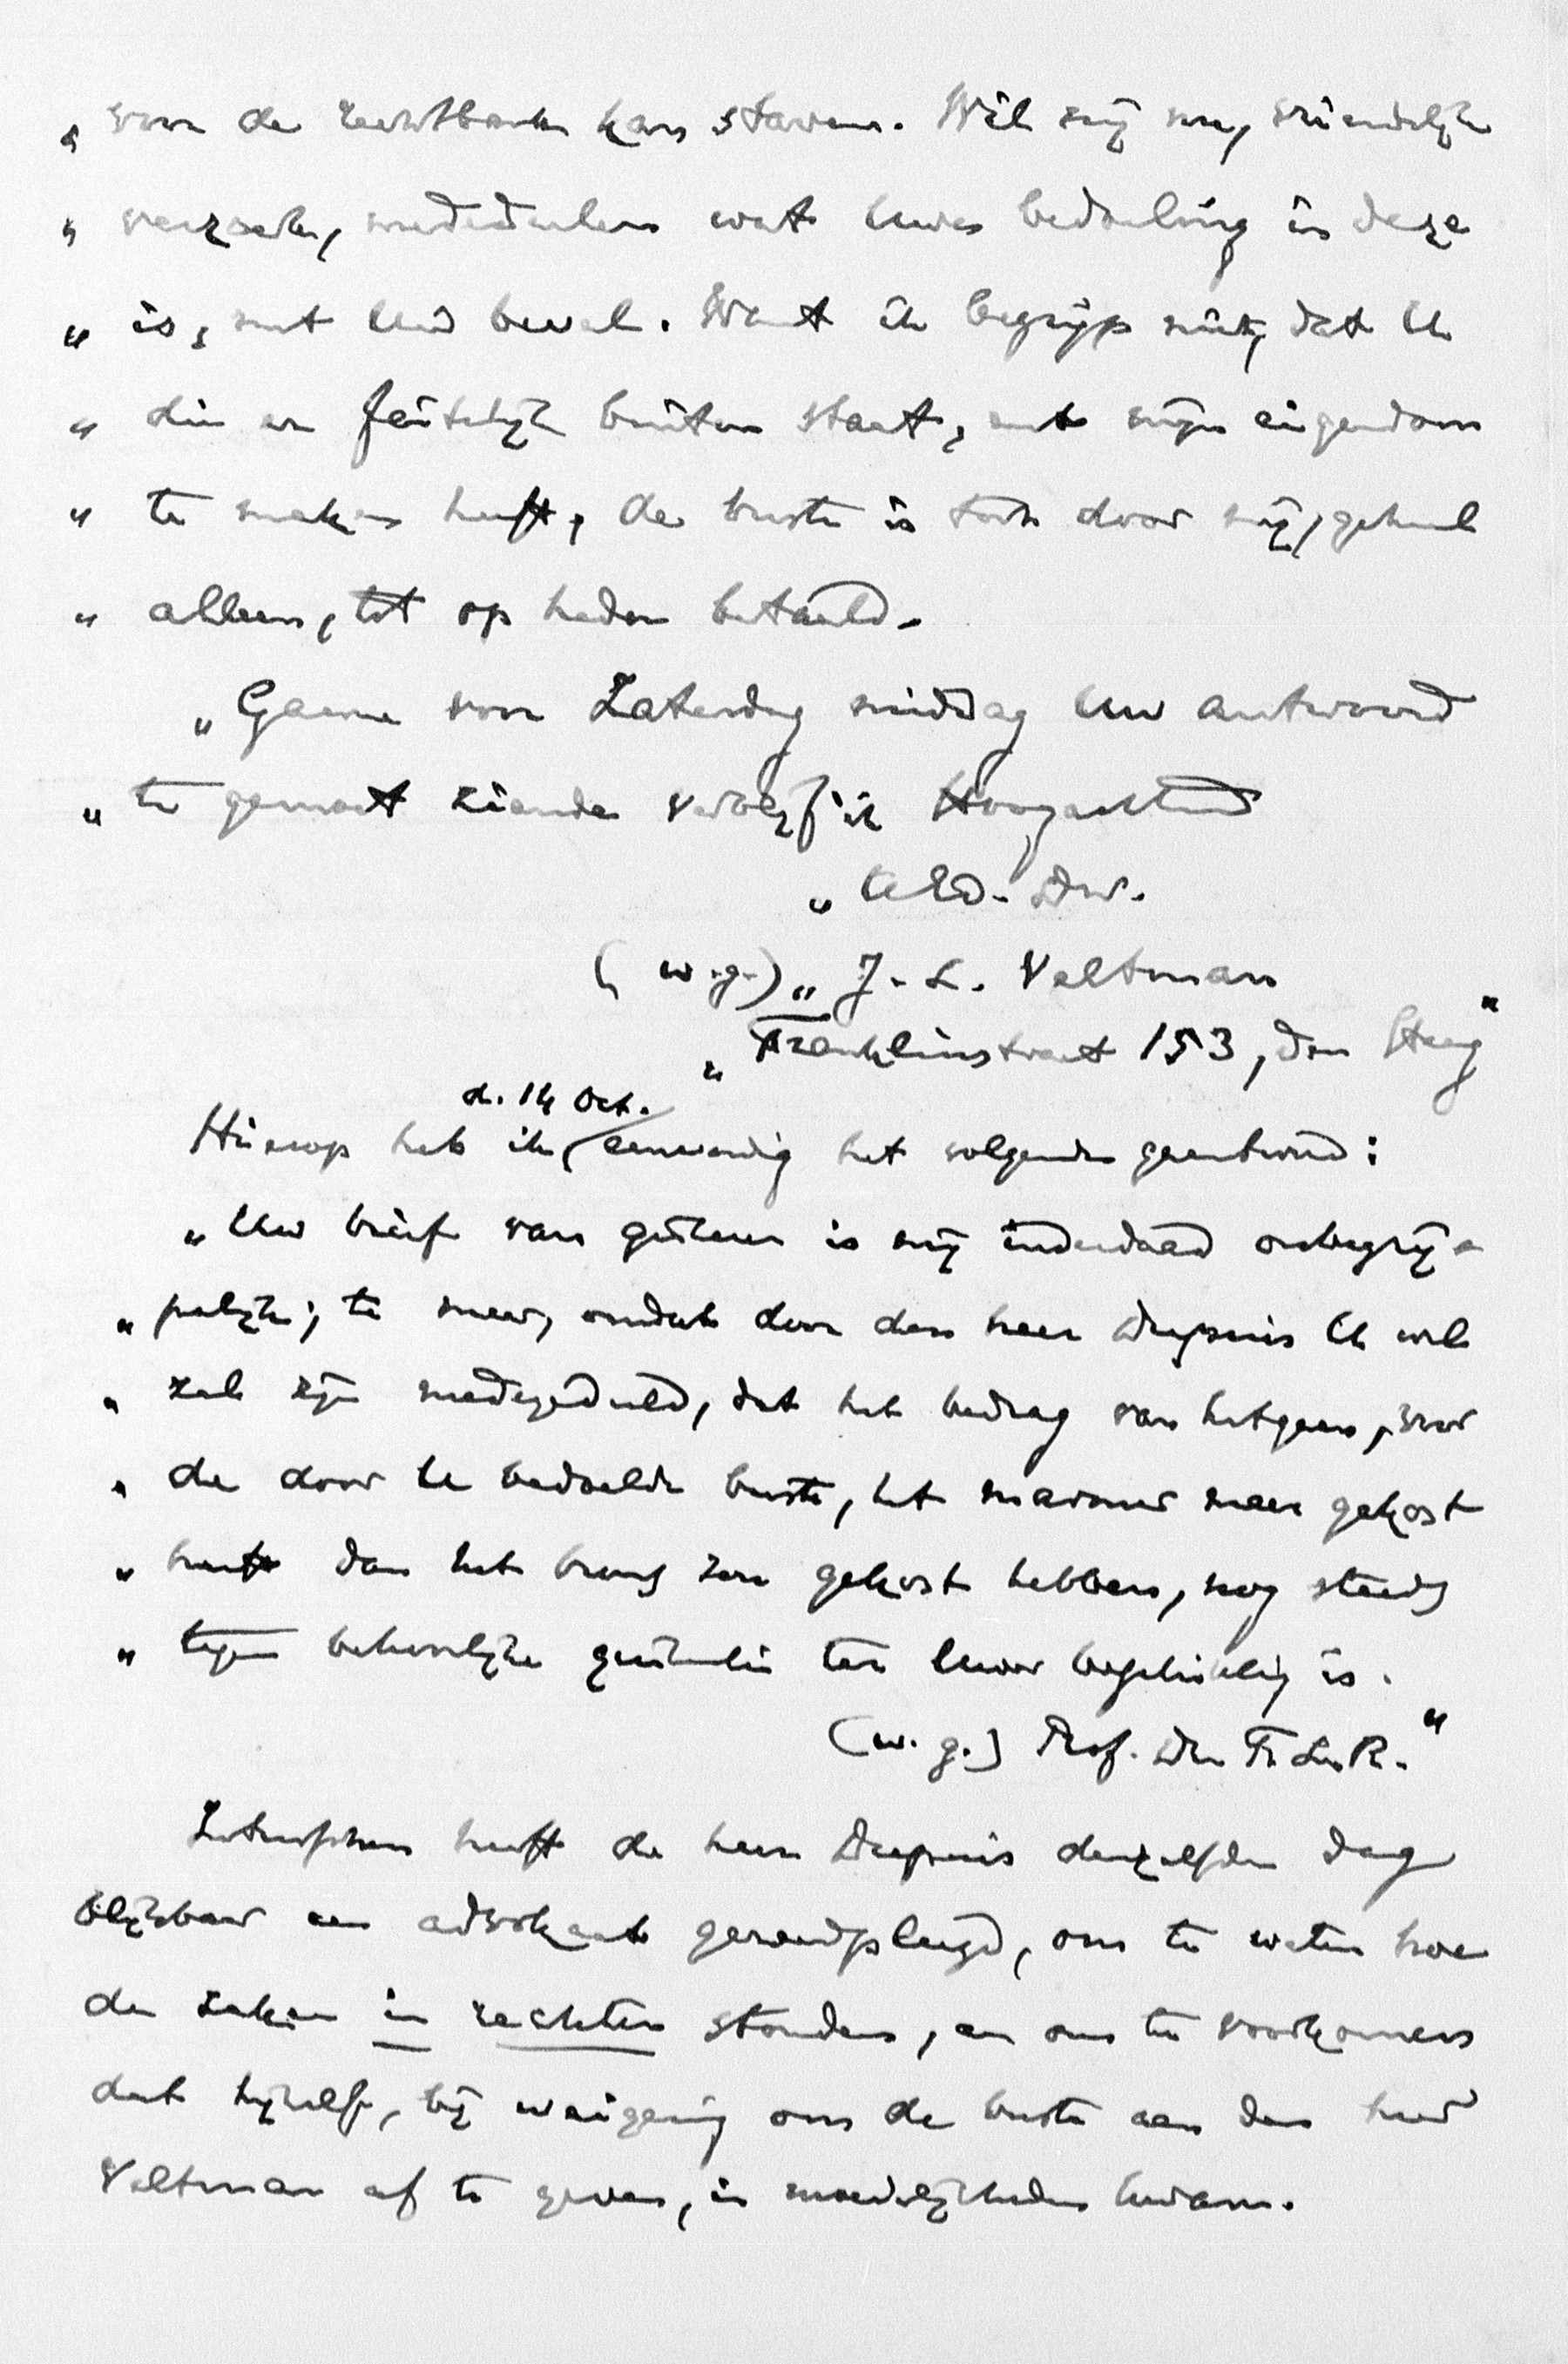 „ voor de rechtbank kan staven. Wil mij nu, vriendelijk
„ verzoeke, mededeelen wat Uwe bedoeling in deze
„ is, met Uw bevel. Want ik begrijp niet, dat U
„ die er feitelijk buiten staat, met mijn eigendom
„ te maken heeft, de buste is toch door mij, geheel
„ alleen, tot op heden betaald.
„Gaarne voor Zaterdag middag Uw antwoord
„ te gemoet ziende verblijf ik Hoogachtend
„ UEd. Dw.
(w.g.) „ J. L. Veltman
„ Franklinstraat 153, den Haag"
d. 14 Oct.
Hierop heb ik eenvoudig het volgende geantwoord:
„Uw brief van gisteren is mij inderdaad onbegrij-
„pelijk; te meer, omdat door den heer Diepenis U wel
„ zal zijn medegedeeld, dat het bedrag van hetgeen, voor
„ de door U bedoelde buste, het marmer meer gekost
„ heeft dan het brons zou gekost hebben, nog steeds
„ tegen behoorlijke quitantie ter Uwer beschikking is.
(w.g.) Prof. Dr F. L. R."
Intusschen heeft de heer Diepenis denzelfden dag
blijkbaar een advokaat geraadpleegd, om te weten hoe
de zaken in rechten stonden, en om te voorkomen
dat hijzelf, bij weigering om de buste aan den heer
Veltman af te geven, in moeielijkheden kwam.